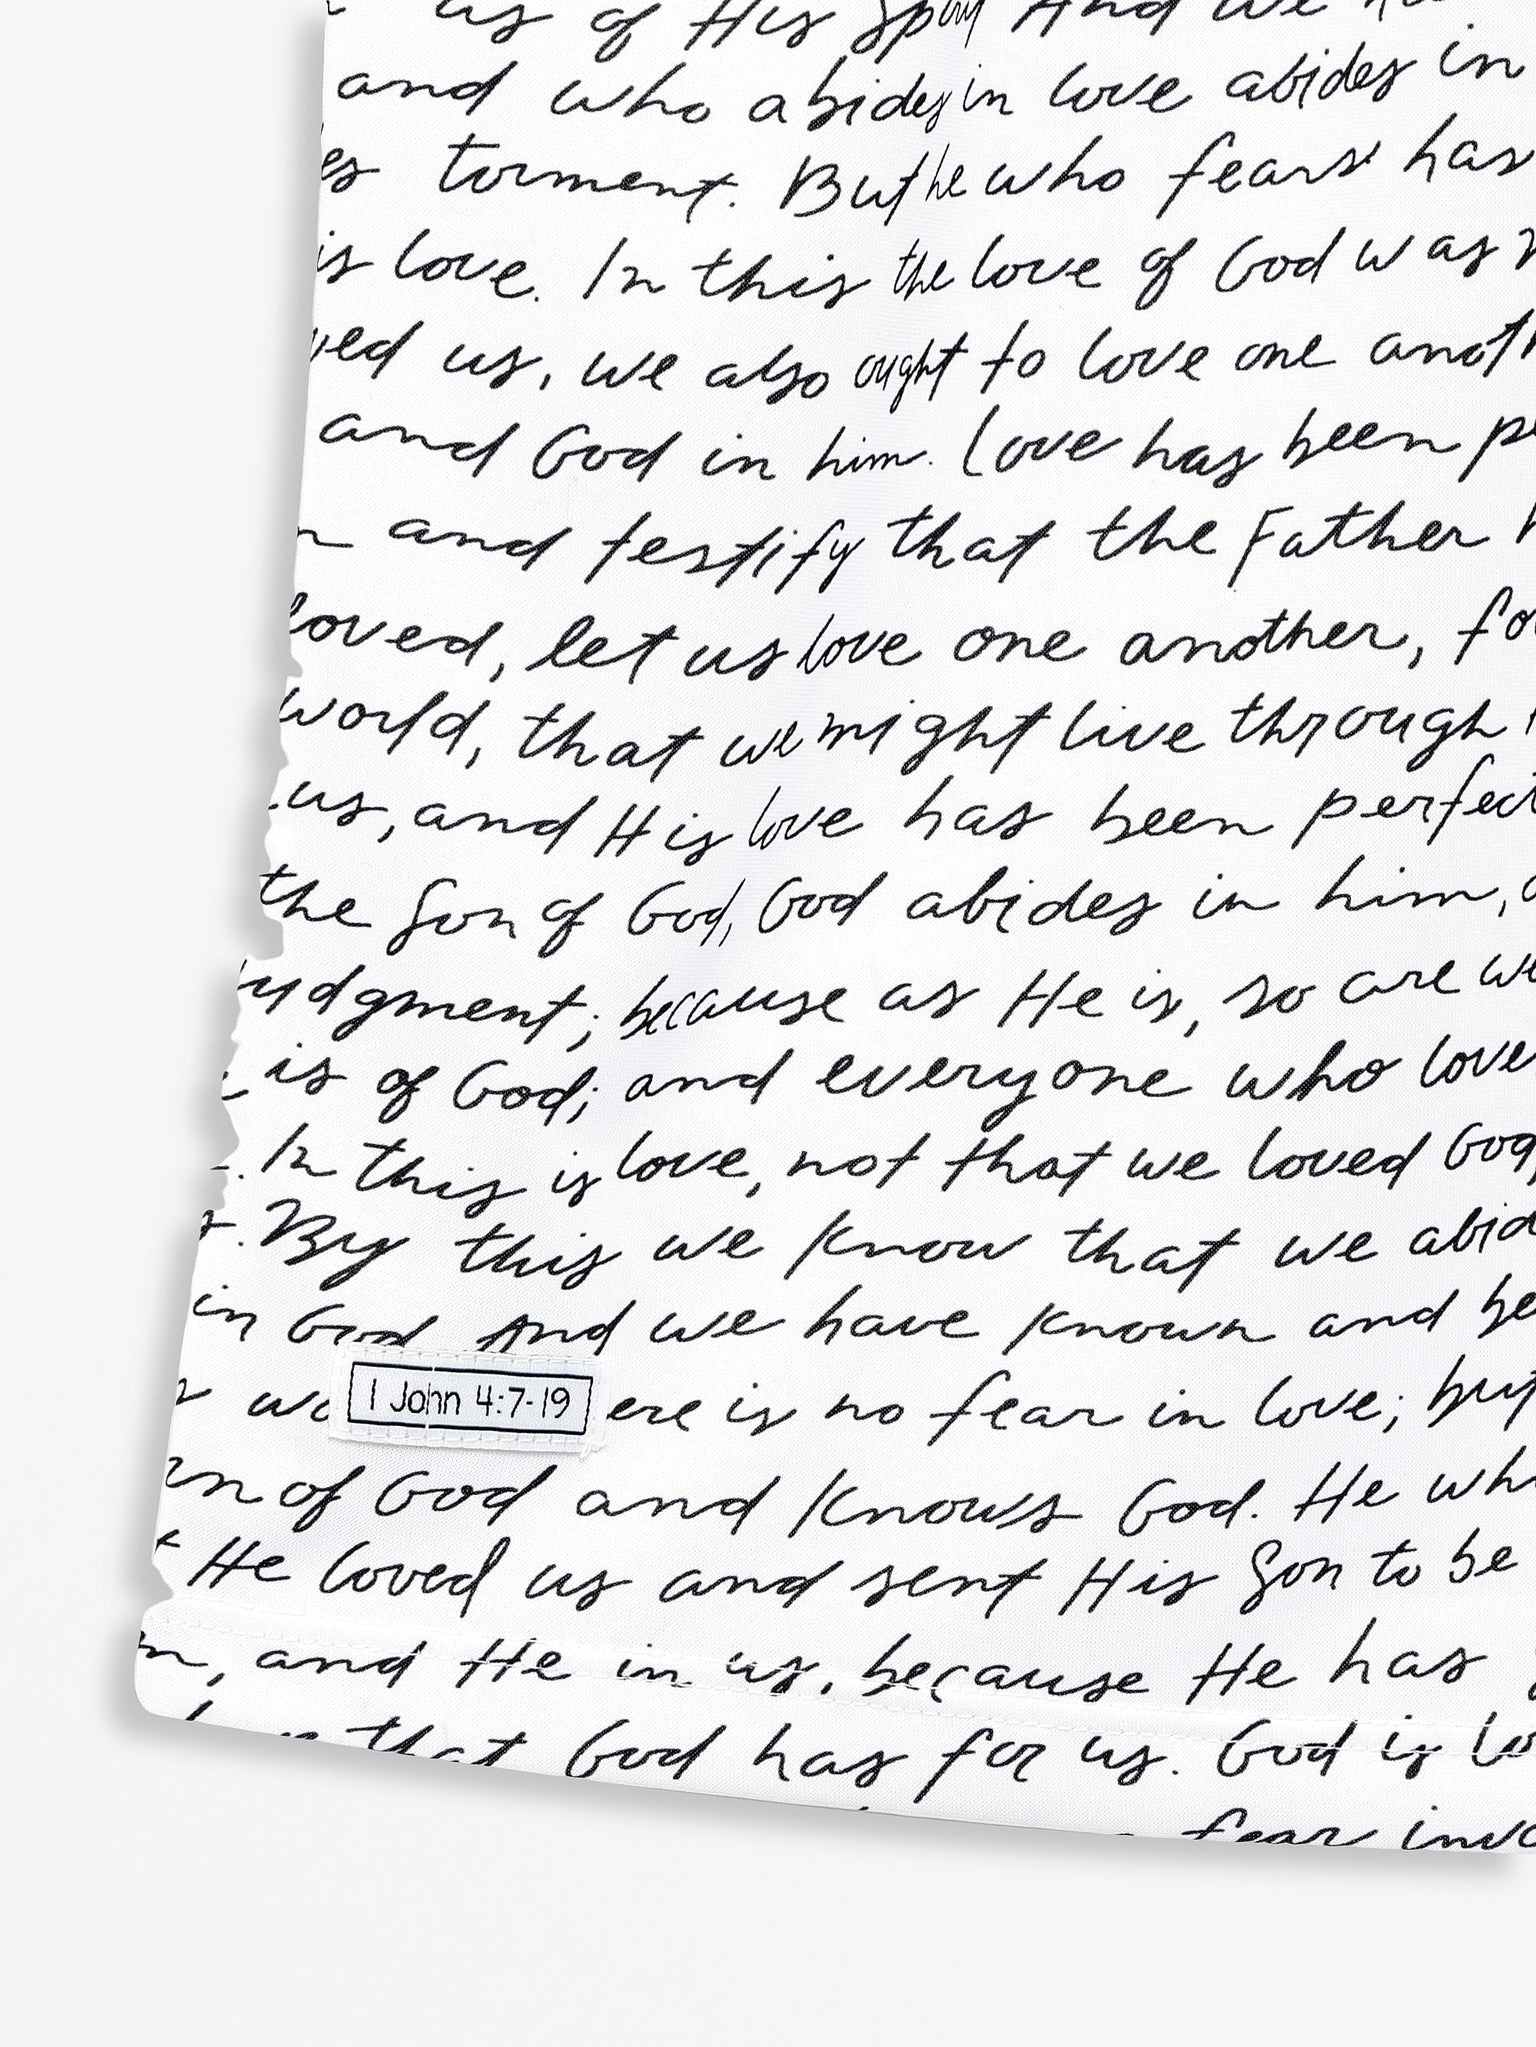 us of His And we
and who abides in love abides in
torment. But he who fears has
is love. In this the love of God was
ved us, we also ought to love one anoth
and God in him. Love has been pe
n and testify that the Father
loved, let us love one another, fo
world, that we might live through
us, and His love has been perfect
the Son of God, God abides in him,
udgment; because as He is, so are we
is of God; and everyone who love
. In this is love, not that we loved God,
. By this we know that we abid
in God And we have known and be
1 John 4:7-19
wo ere is no fear in love; but
rn of God and knows God. He who
t He loved us and sent His Son to be
m, and He in us, because He has
that God has for us. God is lo
fear invo